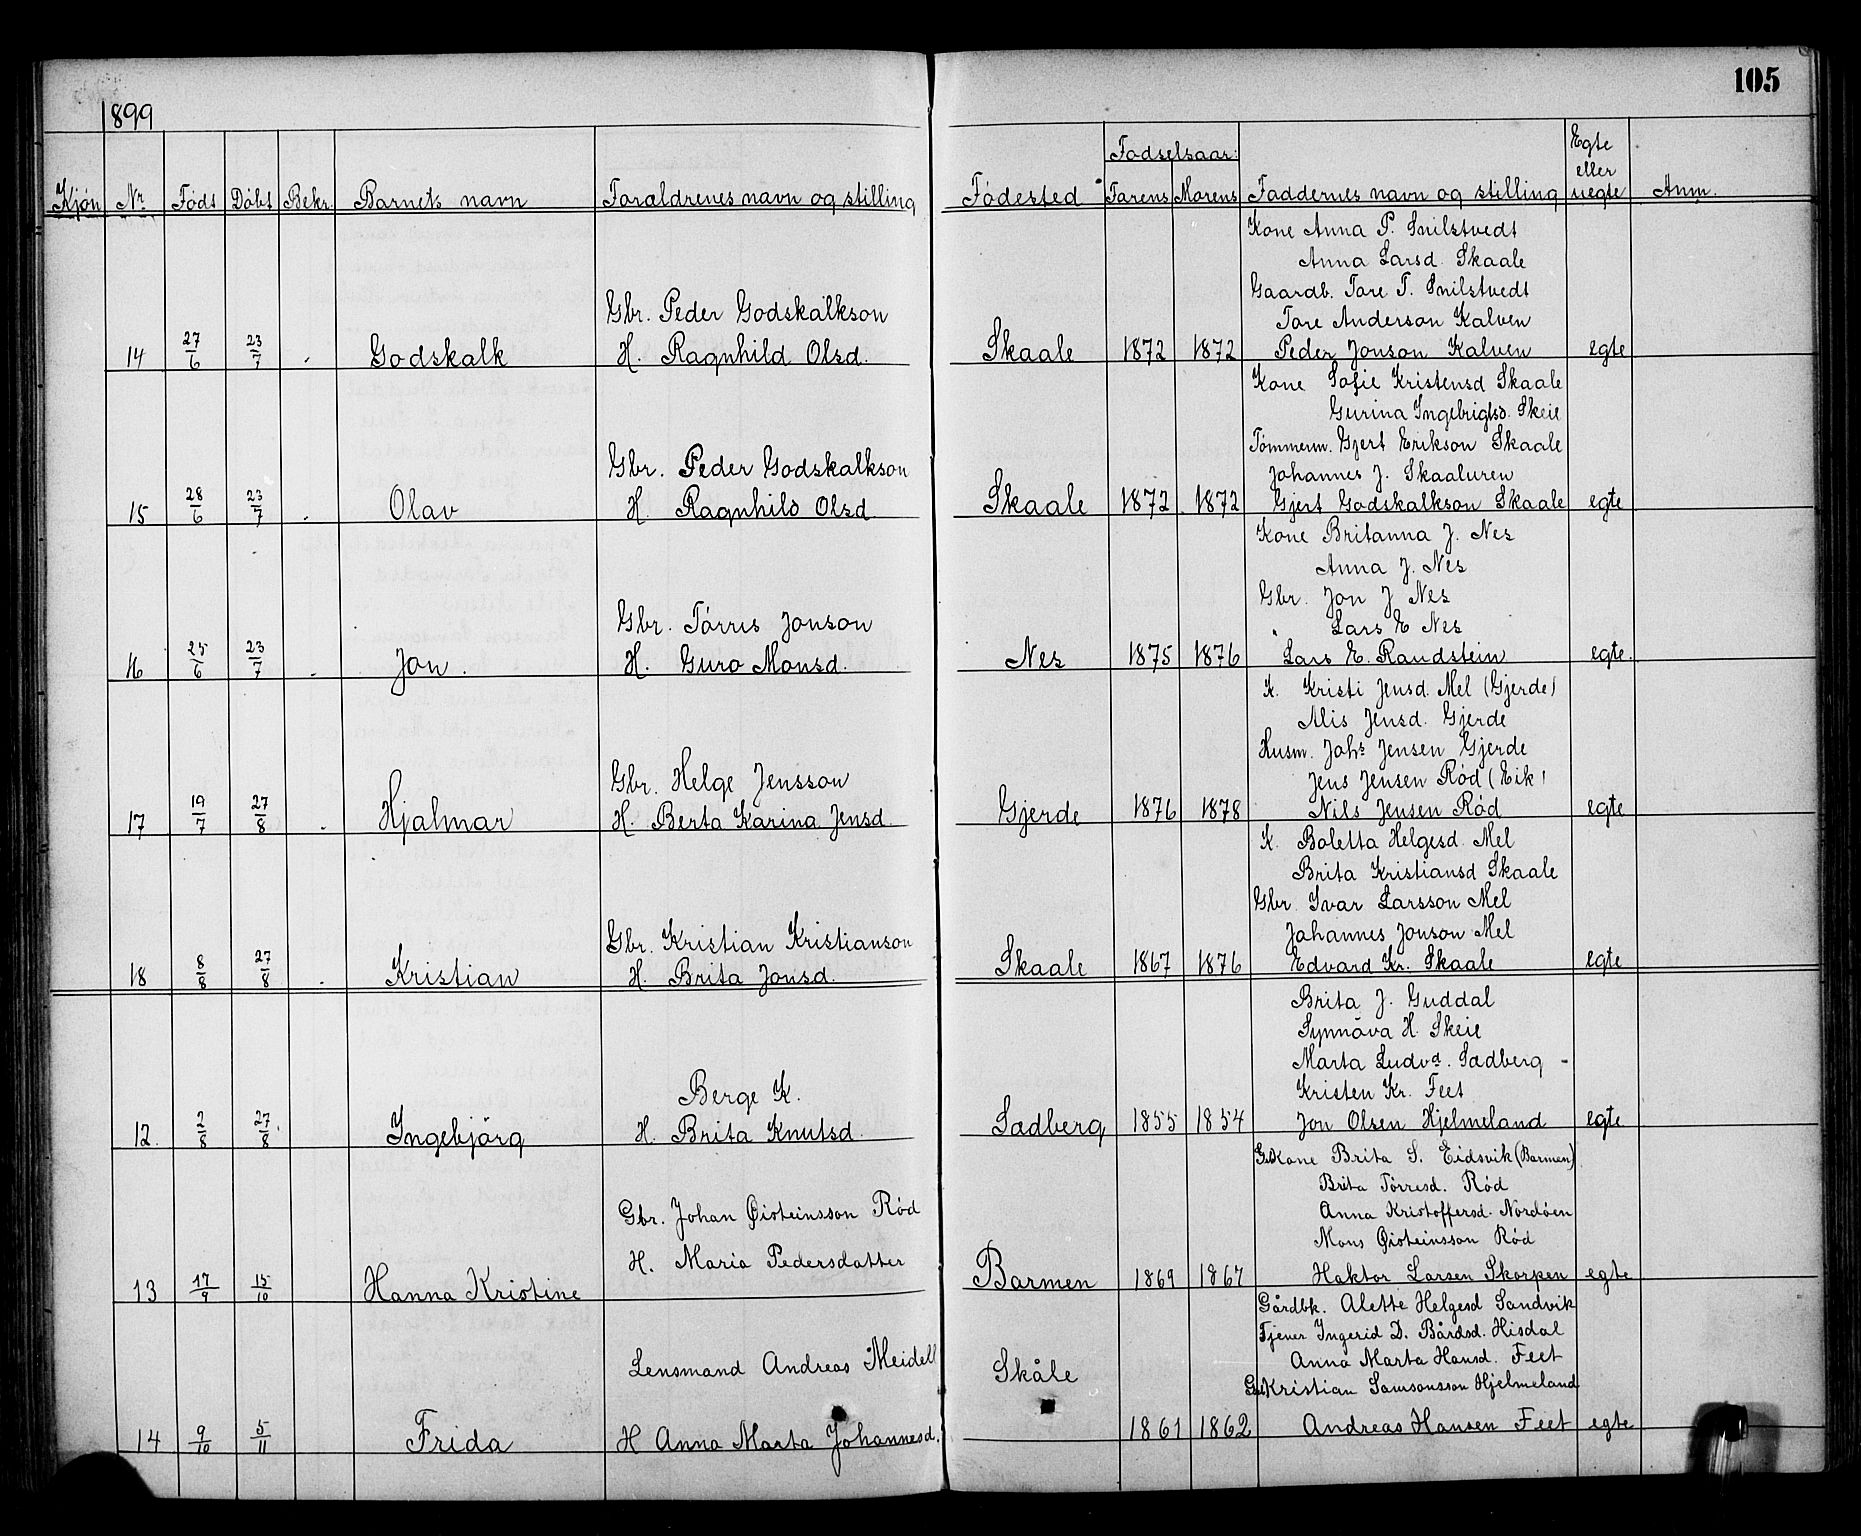 105
1899
Kjön Nr. Föds Döbt Bekr. Barnets navn Forældrenes navn og stilling Födested Fødselsaar: Farens Morens Faddernes navn og stilling Egte eller uegte Anm.
Kone Anna P. Snilstvedt
Anna Larsd. Skaale
Gaardb. Tore T. Snilstvedt
Gbr. Peder Godskalkson Tore Anderson Kalven
14 27/6 23/7 Godskalk H. Ragnhild Olsd. Skaale 1872 1872 Peder Jonson Kalven egte
Kone Sofie Kristensd Skaale
Gurina Ingebrigtsd. Skeie
Tömmerm. Gjert Erikson Skaale
Gbr. Peder Godskalkson Johannes J. Skaaluren
15 28/6 23/7 Olav H. Ragnhild Olsd Skaale 1872 1872 Gjert Godskalkson Skaale egte
Kone Britanna J. Nes
Anna J. Nes
Gbr. Jon J Nes
Gbr. Törris Jonson Lars E Nes
16 25/6 23/7 Jon. H. Guro Monsd. Nes 1875 1876 Lars E. Raudstein egte.
K. Kristi Jensd. Mel (Gjerde)
Alis Jensd. Gjerde
Husm. Johs Jensen Gjerde
Gbr. Helge Jensson Jens Jensen Röd (Eik)
17 19/7 27/8 Hjalmar H. Berta Karina Jensd. Gjerde 1876 1878 Nils Jensen Röd egte
K. Boletta Helgesd. Mel
Brita Kristiansd Skaale
Gbr Ivar Larsson Mel
Gbr. Kristian Kristianson Johannes Jonson Mel
18 8/8 27/8 Kristian H. Brita Jonsd. Skaale 1867 1876 Edvard Kr. Skaale egte
Brita J. Guddal
Synnöva H. Skeie
Marta Ludvd. Sædberg -
Berge K. Kristen Kr. Feet
12. 2/8 27/8 Ingebjörg H. Brita Knutsd. Sædberg 1855 1854 Jon Olsen Hjelmeland egte
Kone Brita S. Eidsvik (Barmen)
Brita Törresd. Röd
Gbr. Johan Øisteinsson Röd Anna Kristoffersd. Nordöen
H. Maria Pedersdatter Mons Øisteinsson Röd
13 17/9 15/10 Hanna Kristine Barmen 1869 1867 Haktor Larsen Skorpen egte
Gårdbk. Alette Helgesd Sandvik
Tjener Ingerid D. Bårdsd. Hisdal
Lensmand Andreas Meidell Skåle Anna Marta Hansd. Feet
Kristian Samsonsson Hjelmeland
14 9/10 5/11 Frida H Anna Marta Johannesd. 1861 1862 Andreas Hansen Feet egte